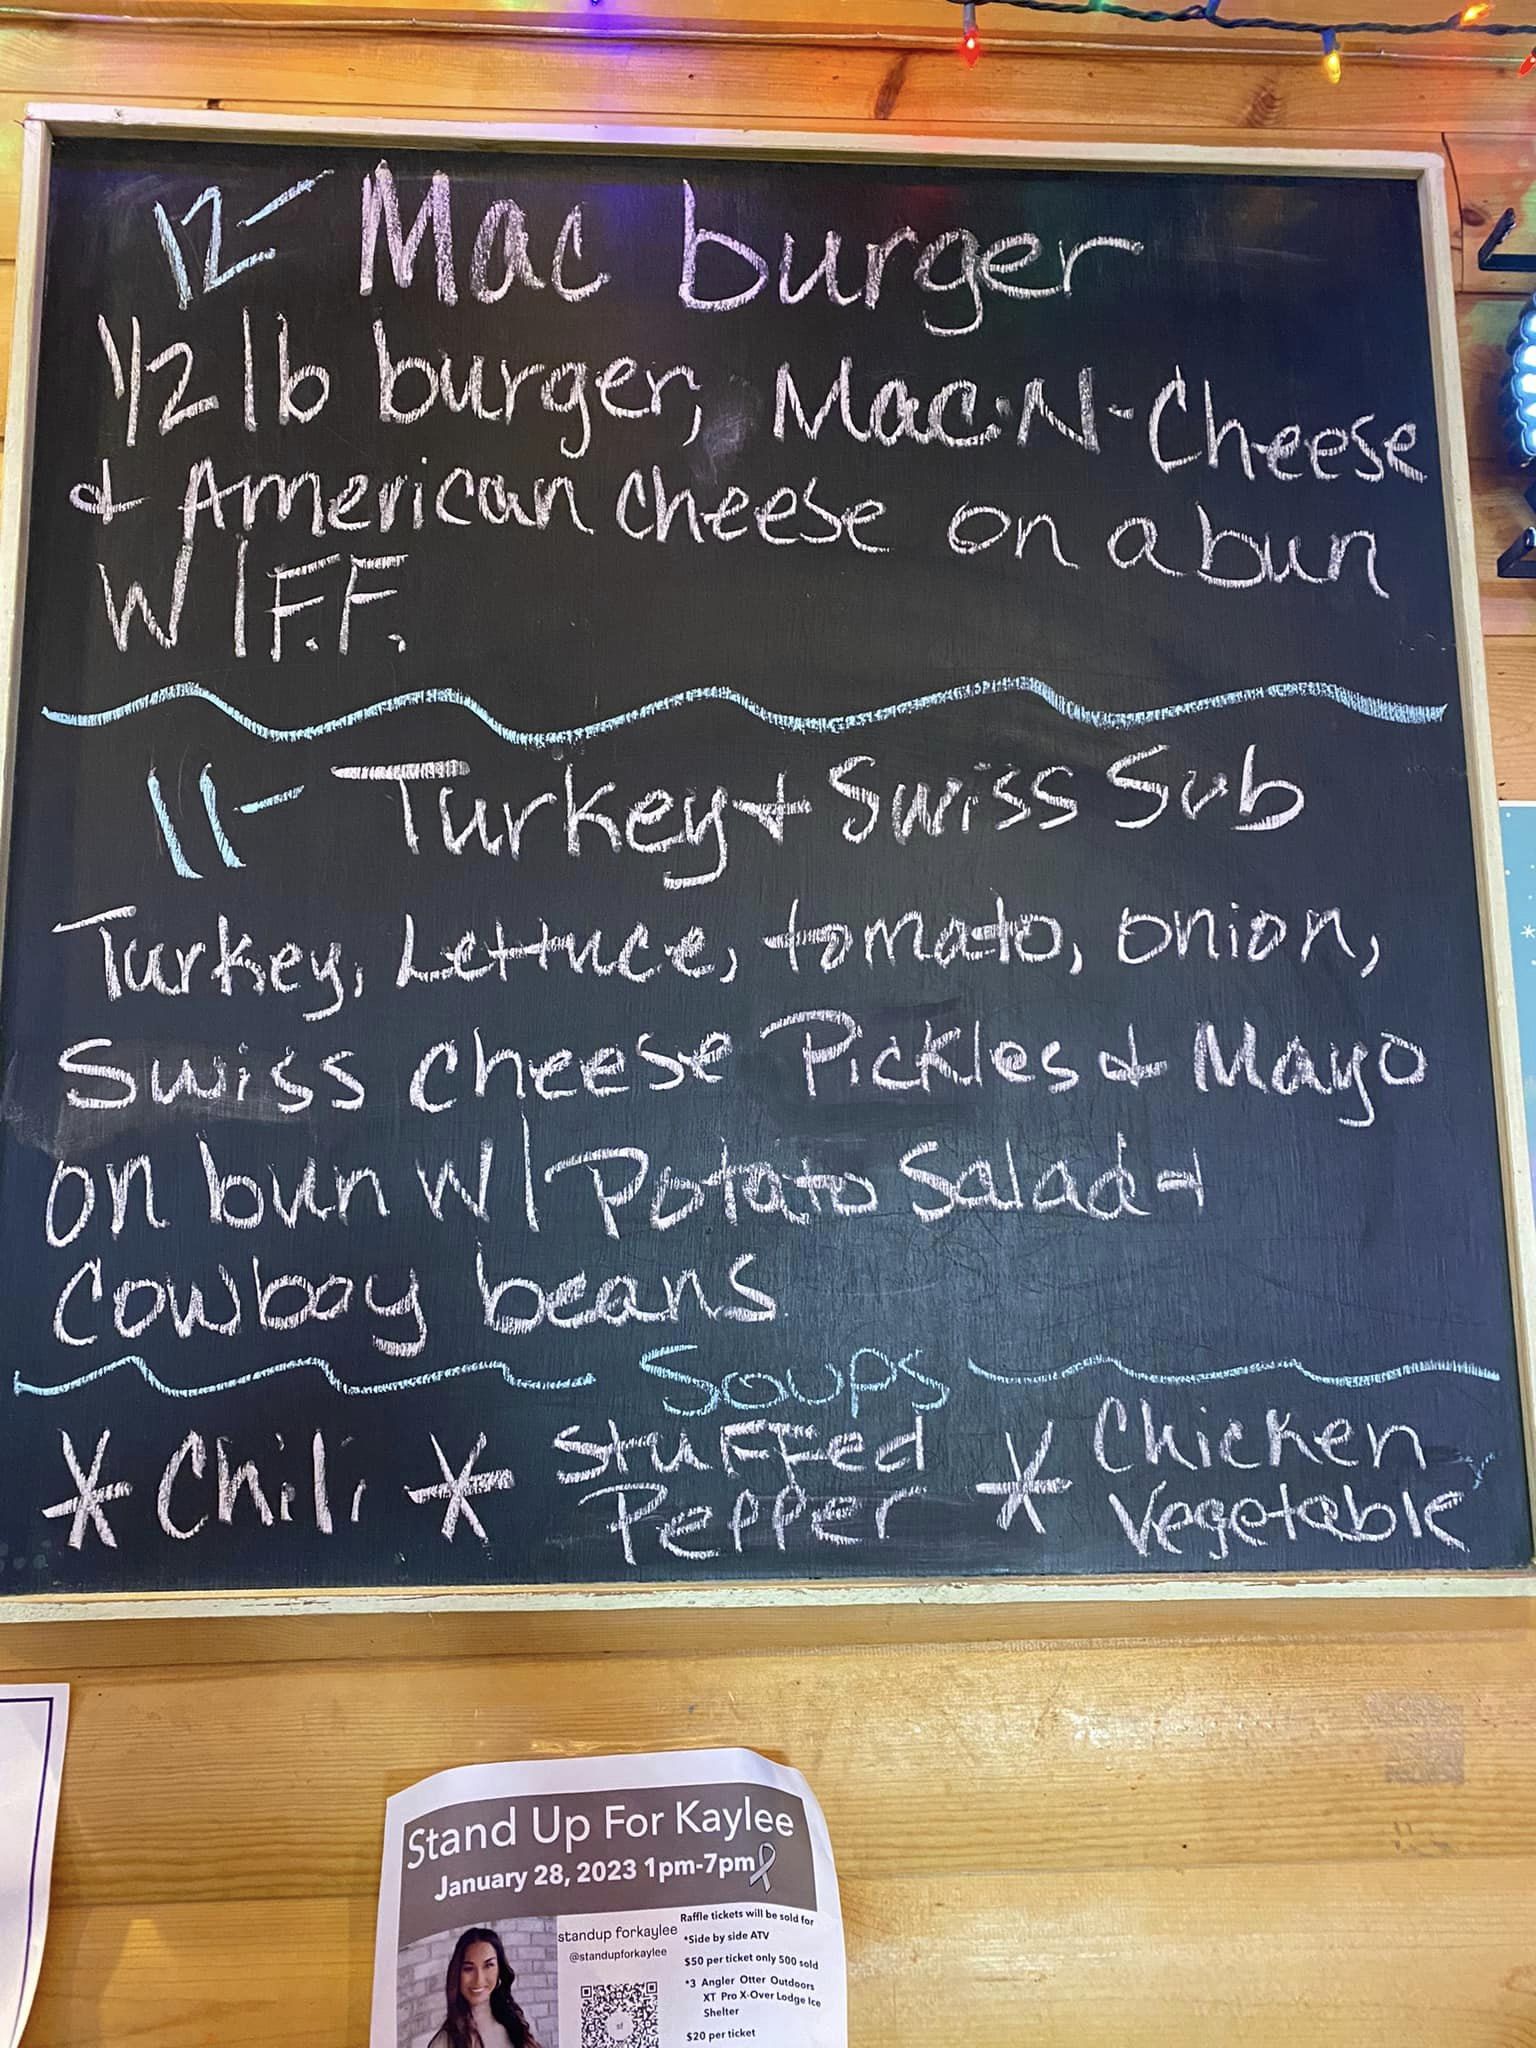 12- Mac burger
1/2 lb burger, Mac-N-Cheese
& American cheese on a bun
W/F.F.
11- Turkey & Swiss Sub
Turkey, Lettuce, tomato, onion,
Swiss cheese Pickles & Mayo
on bun w/ Potato Salad &
Cowboy beans
Soups
* Chili * Stuffed Pepper * Chicken Vegetable
Stand Up For Kaylee
January 28, 2023 1pm-7pm
standup forkaylee
@standupforkaylee
sf
Raffle tickets will be sold for
*Side by side ATV
$50 per ticket only 500 sold
*3 Angler Otter Outdoors
XT Pro X-Over Lodge Ice
Shelter
$20 per ticket